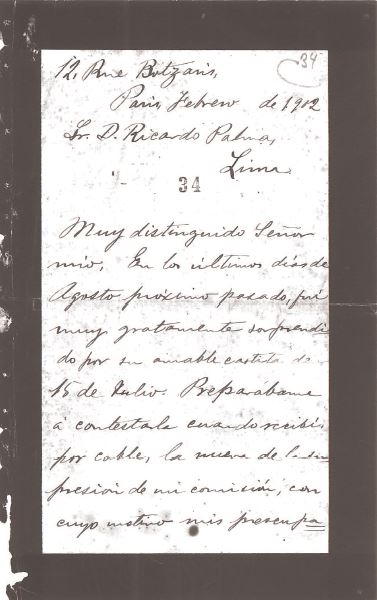 34
12, Rue Botzaris,
Paris, Febrero de 1902
Sr. D. Ricardo Palma,
Lima.
34
Muy distinguido Señor
mío, En los últimos días de
Agosto próximo pasado, fuí
muy gratamente sorprendi
do por su amable cartita de
15 de Julio. Preparábame
á contestala cuando recibí,
por cable, la nueva de la su
presión de mi comisión, con
cuyo motivo mis preocupa